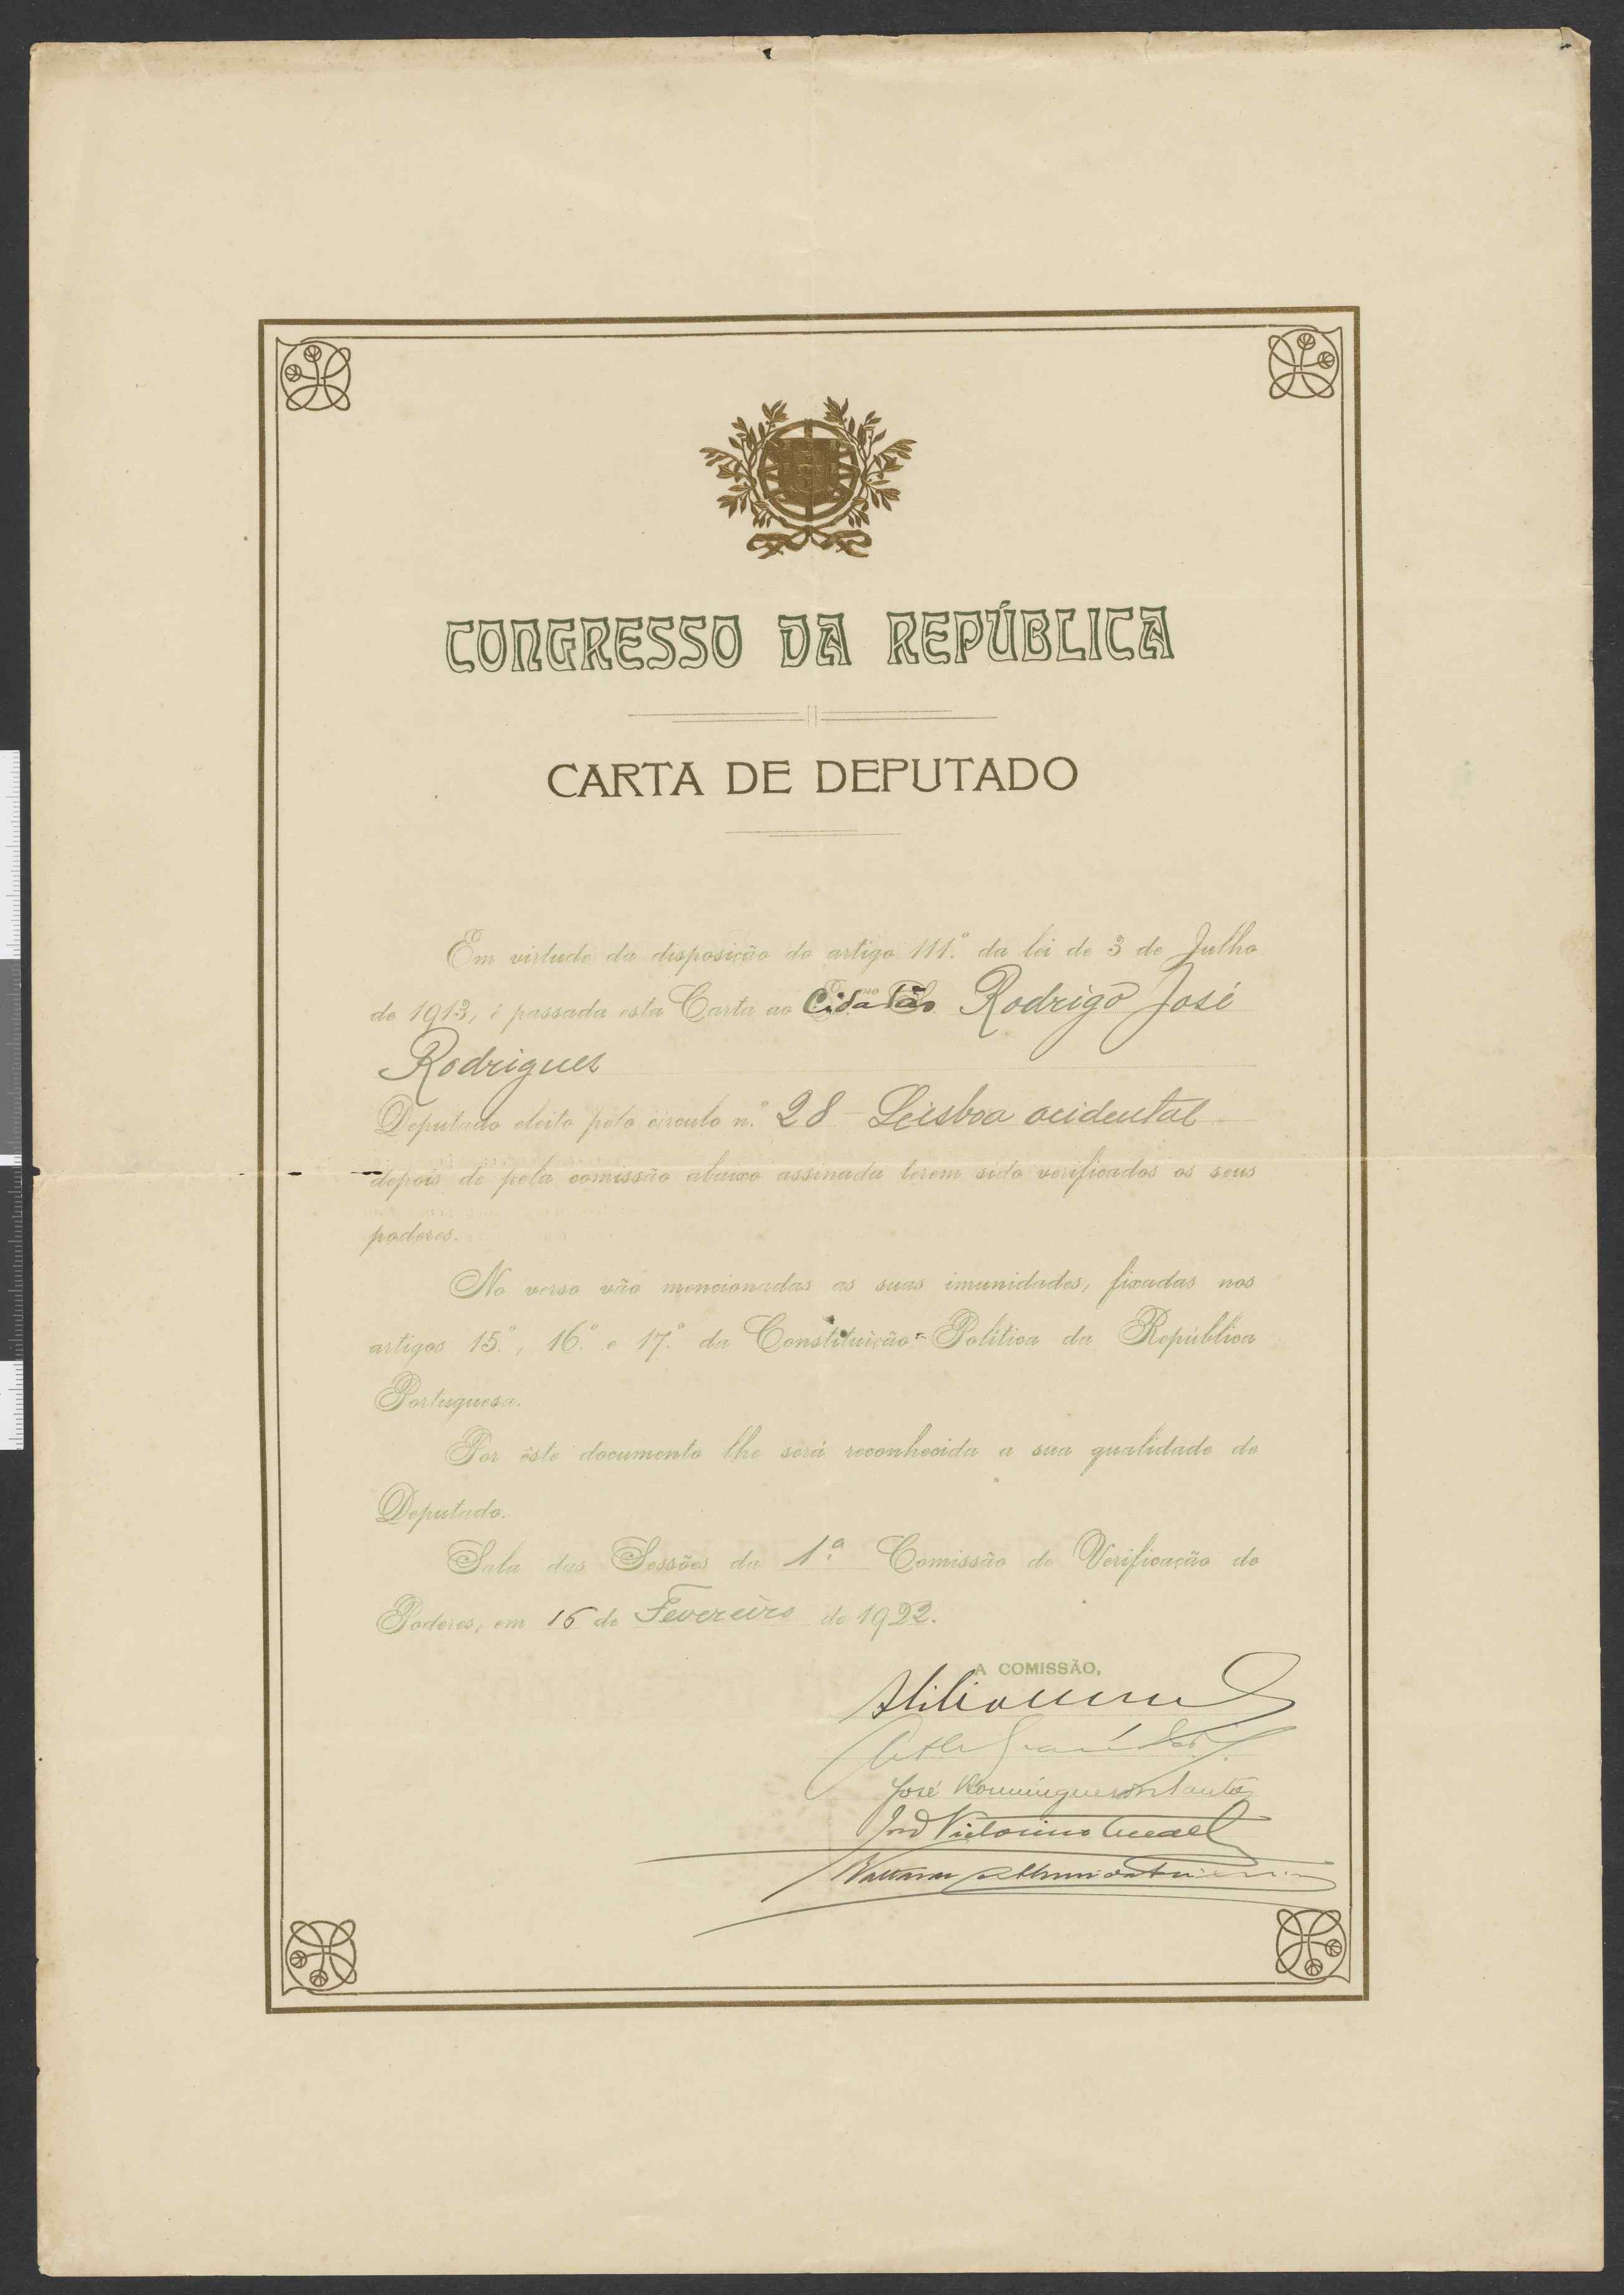 CONGRESSO DA REPÚBLICA
CARTA DE DEPUTADO
Em virtude da disposição do artigo 111.º da lei de 3 de Julho
de 1913, é passada esta Carta ao Cidadão Rodrigo José
Rodrigues
Deputado eleito pelo círculo n.º 28 - Lisboa ocidental
depois de pela comissão abaixo assinada terem sido verificados os seus
poderes.
No verso vão mencionadas as suas imunidades, fixadas nos
artigos 15.º, 16.º e 17.º da Constituição Política da República
Portuguesa.
Por êste documento lhe será reconhecida a sua qualidade de
Deputado.
Sala das Sessões da 1.ª Comissão de Verificação de
Poderes, em 16 de Fevereiro de 1922.
A COMISSÃO,
José Domingues dos Santos